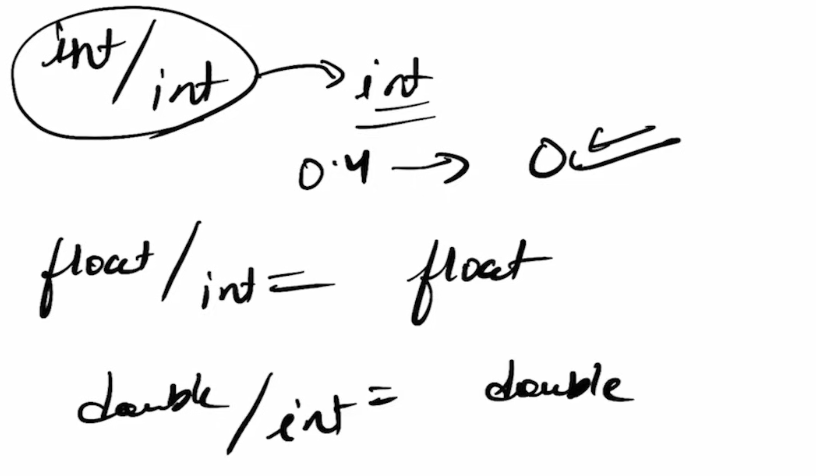 int/int → int
0.4 → 0
float/int = float
double/int = double